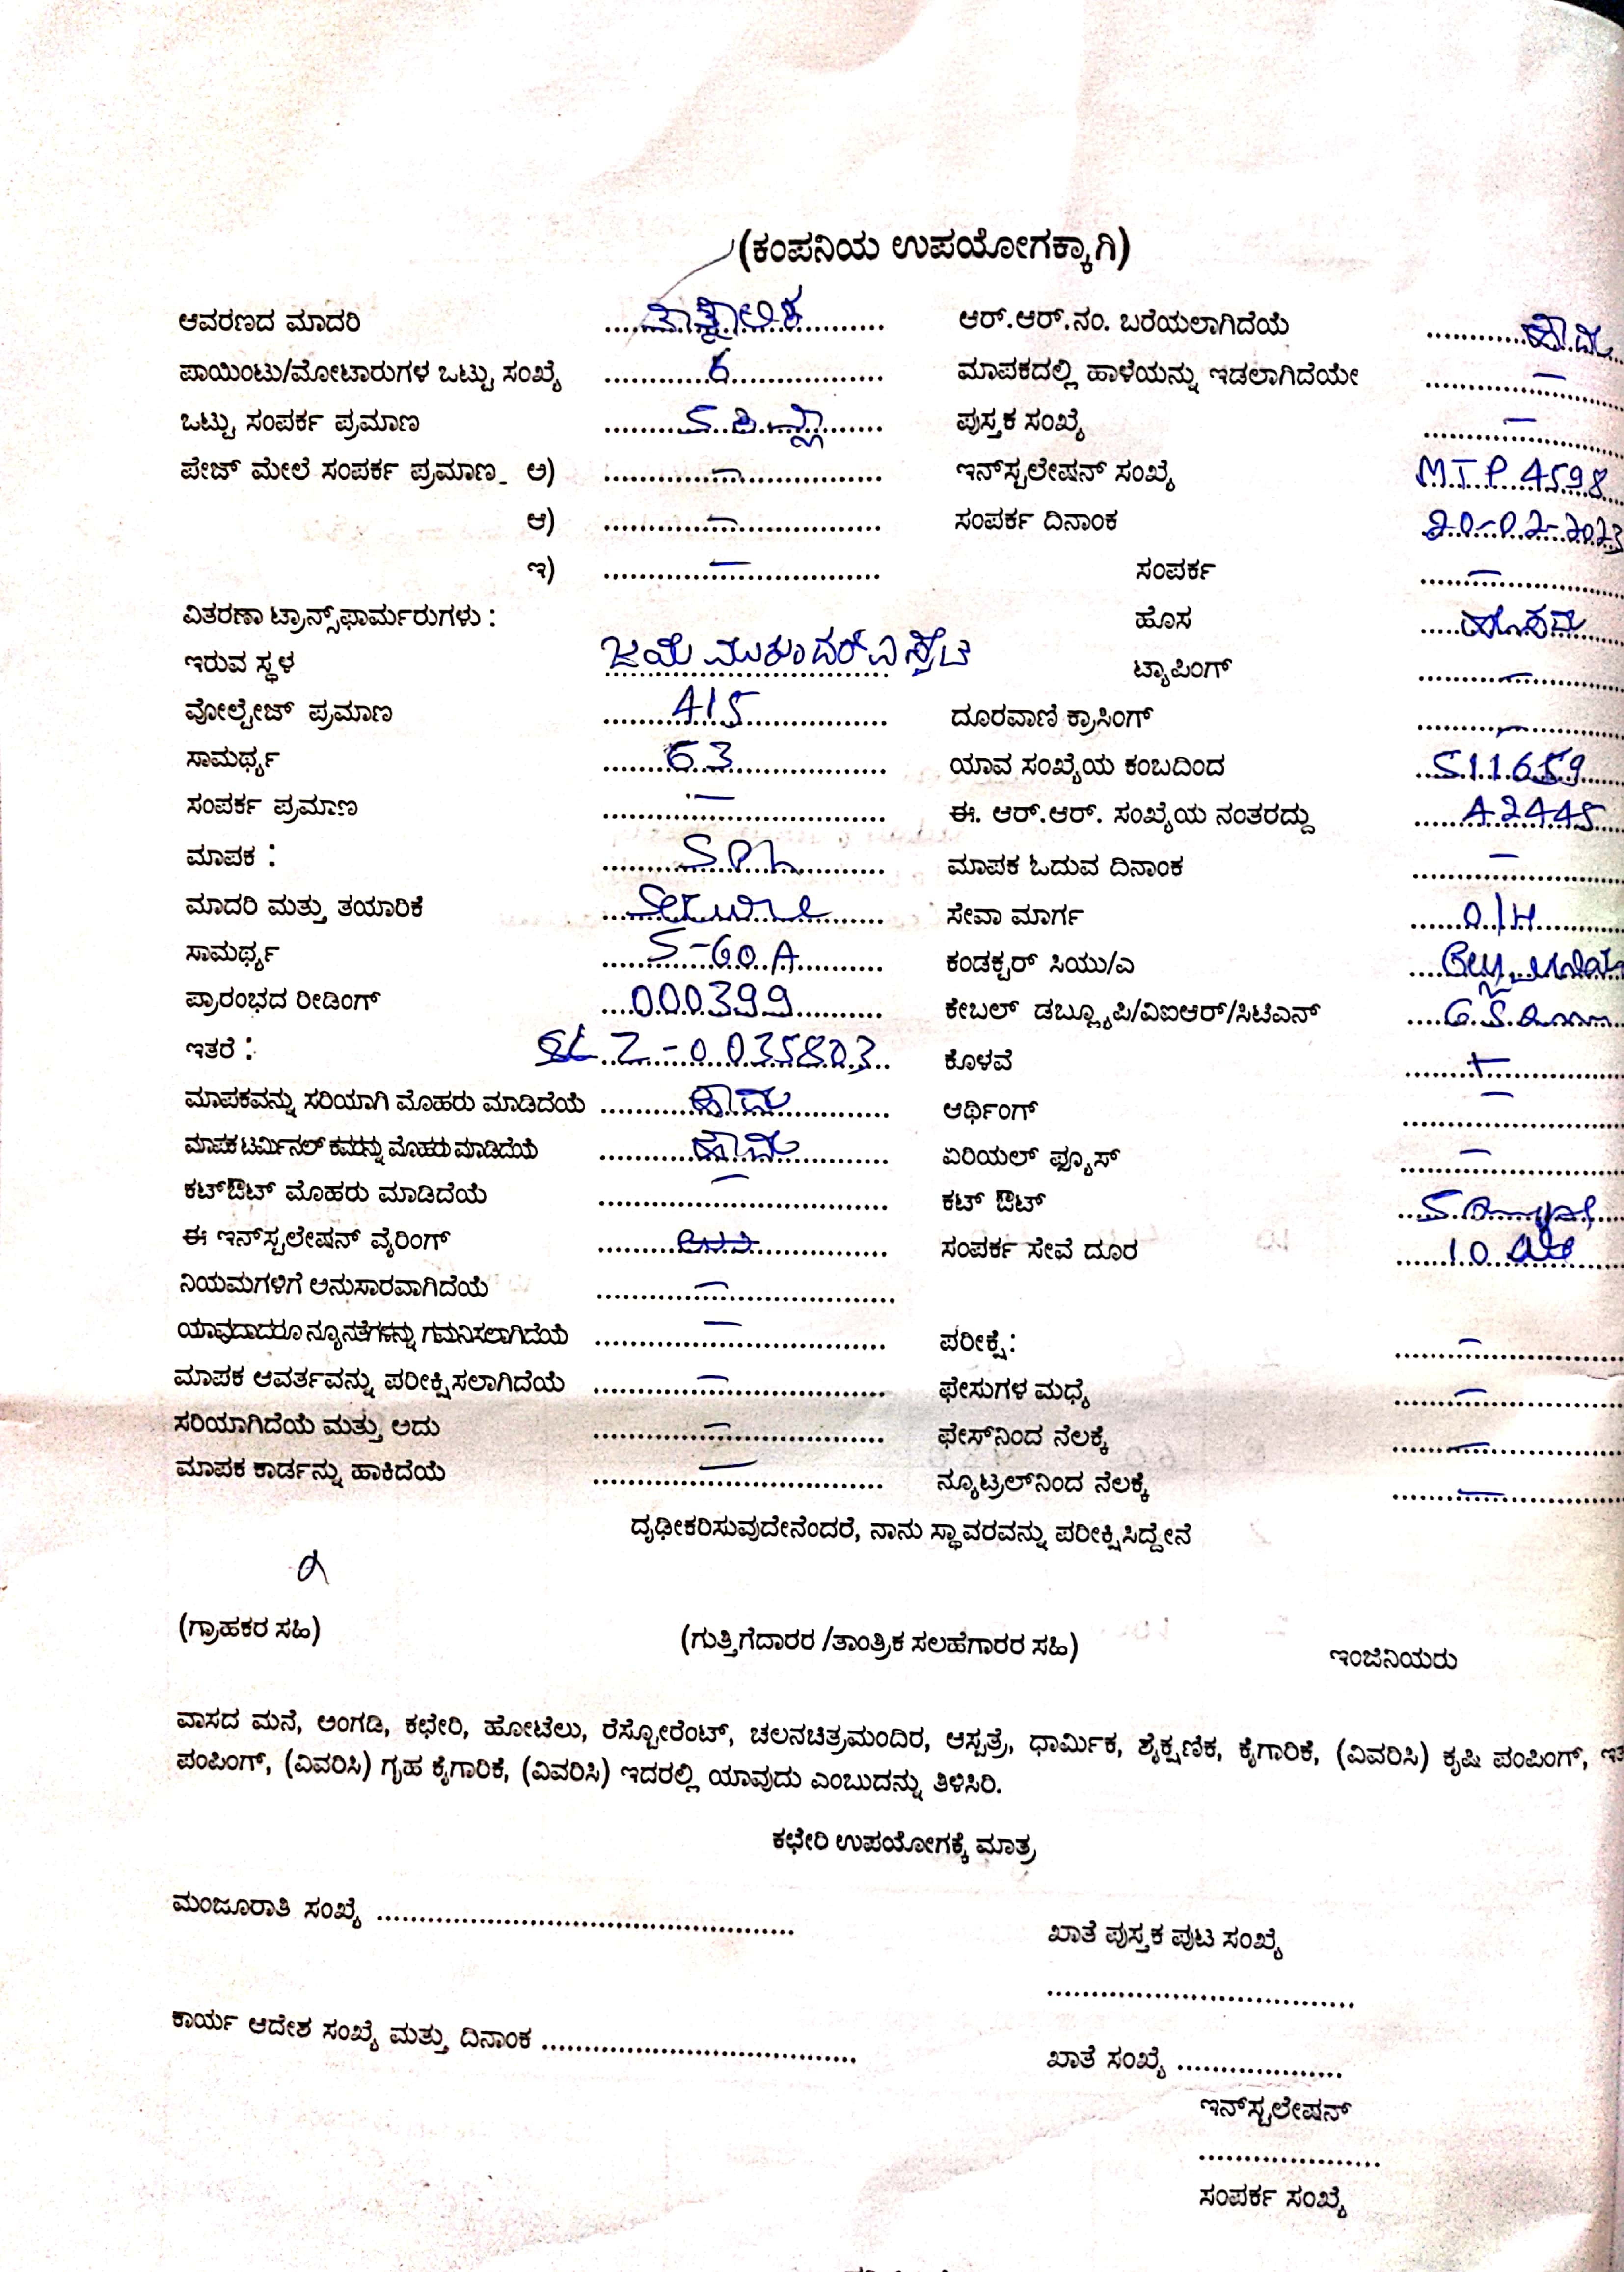 (ಕಂಪನಿಯ ಉಪಯೋಗಕ್ಕಾಗಿ)
ಆವರಣದ ಮಾದರಿ ........ ತಾತ್ಕಾಲಿಕ ........ ಆರ್.ಆರ್.ನಂ. ಬರೆಯಲಾಗಿದೆಯೆ ........ ಹೌದು
ಪಾಯಿಂಟು/ಮೋಟಾರುಗಳ ಒಟ್ಟು ಸಂಖ್ಯೆ ........ 6 ........ ಮಾಪಕದಲ್ಲಿ ಹಾಳೆಯನ್ನು ಇಡಲಾಗಿದೆಯೇ ........ —
ಒಟ್ಟು ಸಂಪರ್ಕ ಪ್ರಮಾಣ ........ ಪುಸ್ತಕ ಸಂಖ್ಯೆ ........ —
ಪೇಜ್ ಮೇಲೆ ಸಂಪರ್ಕ ಪ್ರಮಾಣ - ಅ) ........ — ........ ಇನ್‌ಸ್ಟಲೇಷನ್ ಸಂಖ್ಯೆ MTP 4598
ಆ) ........ — ........ ಸಂಪರ್ಕ ದಿನಾಂಕ 20-02-2023
ಇ) ........ — ........ ಸಂಪರ್ಕ ........ —
ವಿತರಣಾ ಟ್ರಾನ್ಸ್‌ಫಾರ್ಮರುಗಳು : ಹೊಸ ........ ಹೊಸದು
ಇರುವ ಸ್ಥಳ ........ ಟ್ಯಾಪಿಂಗ್ ........ —
ವೋಲ್ಟೇಜ್ ಪ್ರಮಾಣ ........ 415 ........ ದೂರವಾಣಿ ಕ್ರಾಸಿಂಗ್ ........ —
ಸಾಮರ್ಥ್ಯ ........ 63 ........ ಯಾವ ಸಂಖ್ಯೆಯ ಕಂಬದಿಂದ ........ 511659
ಸಂಪರ್ಕ ಪ್ರಮಾಣ ........ — ........ ಈ. ಆರ್.ಆರ್. ಸಂಖ್ಯೆಯ ನಂತರದ್ದು ........ 42445
ಮಾಪಕ : ........ S.Ph ........ ಮಾಪಕ ಓದುವ ದಿನಾಂಕ ........ —
ಮಾದರಿ ಮತ್ತು ತಯಾರಿಕೆ ........ Secure ........ ಸೇವಾ ಮಾರ್ಗ ........ O/H
ಸಾಮರ್ಥ್ಯ ........ 5-60 A ........ ಕಂಡಕ್ಟರ್ ಸಿಯು/ಎ ........
ಪ್ರಾರಂಭದ ರೀಡಿಂಗ್ ........ 000399 ........ ಕೇಬಲ್ ಡಬ್ಲ್ಯೂಪಿ/ವಿಐಆರ್/ಸಿಟಿಎನ್ ........
ಇತರೆ : Z-0035803 ........ ಕೊಳವೆ ........
ಮಾಪಕವನ್ನು ಸರಿಯಾಗಿ ಮೊಹರು ಮಾಡಿದೆಯೆ ........ ಹೌದು ........ ಆರ್ಥಿಂಗ್ ........ —
ಮಾಪಕ ಟರ್ಮಿನಲ್ ಕವರನ್ನು ಮೊಹರು ಮಾಡಿದೆಯೆ ........ ಹೌದು ........ ಏರಿಯಲ್ ಫ್ಯೂಸ್ ........ —
ಕಟ್‌ಔಟ್ ಮೊಹರು ಮಾಡಿದೆಯೆ ........ — ........ ಕಟ್ ಔಟ್ ........
ಈ ಇನ್‌ಸ್ಟಲೇಷನ್ ವೈರಿಂಗ್ ........ ಸಂಪರ್ಕ ಸೇವೆ ದೂರ ........ 10
ನಿಯಮಗಳಿಗೆ ಅನುಸಾರವಾಗಿದೆಯೆ ........ —
ಯಾವುದಾದರೂ ನ್ಯೂನತೆಗಳನ್ನು ಗಮನಿಸಲಾಗಿದೆಯೆ ........ — ........ ಪರೀಕ್ಷೆ: ........ —
ಮಾಪಕ ಆವರ್ತವನ್ನು ಪರೀಕ್ಷಿಸಲಾಗಿದೆಯೆ ........ — ........ ಫೇಸುಗಳ ಮಧ್ಯೆ ........ —
ಸರಿಯಾಗಿದೆಯೆ ಮತ್ತು ಅದು ........ — ........ ಫೇಸ್‌ನಿಂದ ನೆಲಕ್ಕೆ ........ —
ಮಾಪಕ ಕಾರ್ಡನ್ನು ಹಾಕಿದೆಯೆ ........ — ........ ನ್ಯೂಟ್ರಲ್‌ನಿಂದ ನೆಲಕ್ಕೆ ........ —
ದೃಢೀಕರಿಸುವುದೇನೆಂದರೆ, ನಾನು ಸ್ಥಾವರವನ್ನು ಪರೀಕ್ಷಿಸಿದ್ದೇನೆ
(ಗ್ರಾಹಕರ ಸಹಿ) (ಗುತ್ತಿಗೆದಾರರ /ತಾಂತ್ರಿಕ ಸಲಹೆಗಾರರ ಸಹಿ) ಇಂಜಿನಿಯರು
ವಾಸದ ಮನೆ, ಅಂಗಡಿ, ಕಛೇರಿ, ಹೋಟೆಲು, ರೆಸ್ಟೋರೆಂಟ್, ಚಲನಚಿತ್ರಮಂದಿರ, ಆಸ್ಪತ್ರೆ, ಧಾರ್ಮಿಕ, ಶೈಕ್ಷಣಿಕ, ಕೈಗಾರಿಕೆ, (ವಿವರಿಸಿ) ಕೃಷಿ ಪಂಪಿಂಗ್,
ಪಂಪಿಂಗ್, (ವಿವರಿಸಿ) ಗೃಹ ಕೈಗಾರಿಕೆ, (ವಿವರಿಸಿ) ಇದರಲ್ಲಿ ಯಾವುದು ಎಂಬುದನ್ನು ತಿಳಿಸಿರಿ.
ಕಛೇರಿ ಉಪಯೋಗಕ್ಕೆ ಮಾತ್ರ
ಮಂಜೂರಾತಿ ಸಂಖ್ಯೆ ........
ಖಾತೆ ಪುಸ್ತಕ ಪುಟ ಸಂಖ್ಯೆ
........
ಕಾರ್ಯ ಆದೇಶ ಸಂಖ್ಯೆ ಮತ್ತು ದಿನಾಂಕ ........
ಖಾತೆ ಸಂಖ್ಯೆ ........
ಇನ್‌ಸ್ಟಲೇಷನ್
........
ಸಂಪರ್ಕ ಸಂಖ್ಯೆ